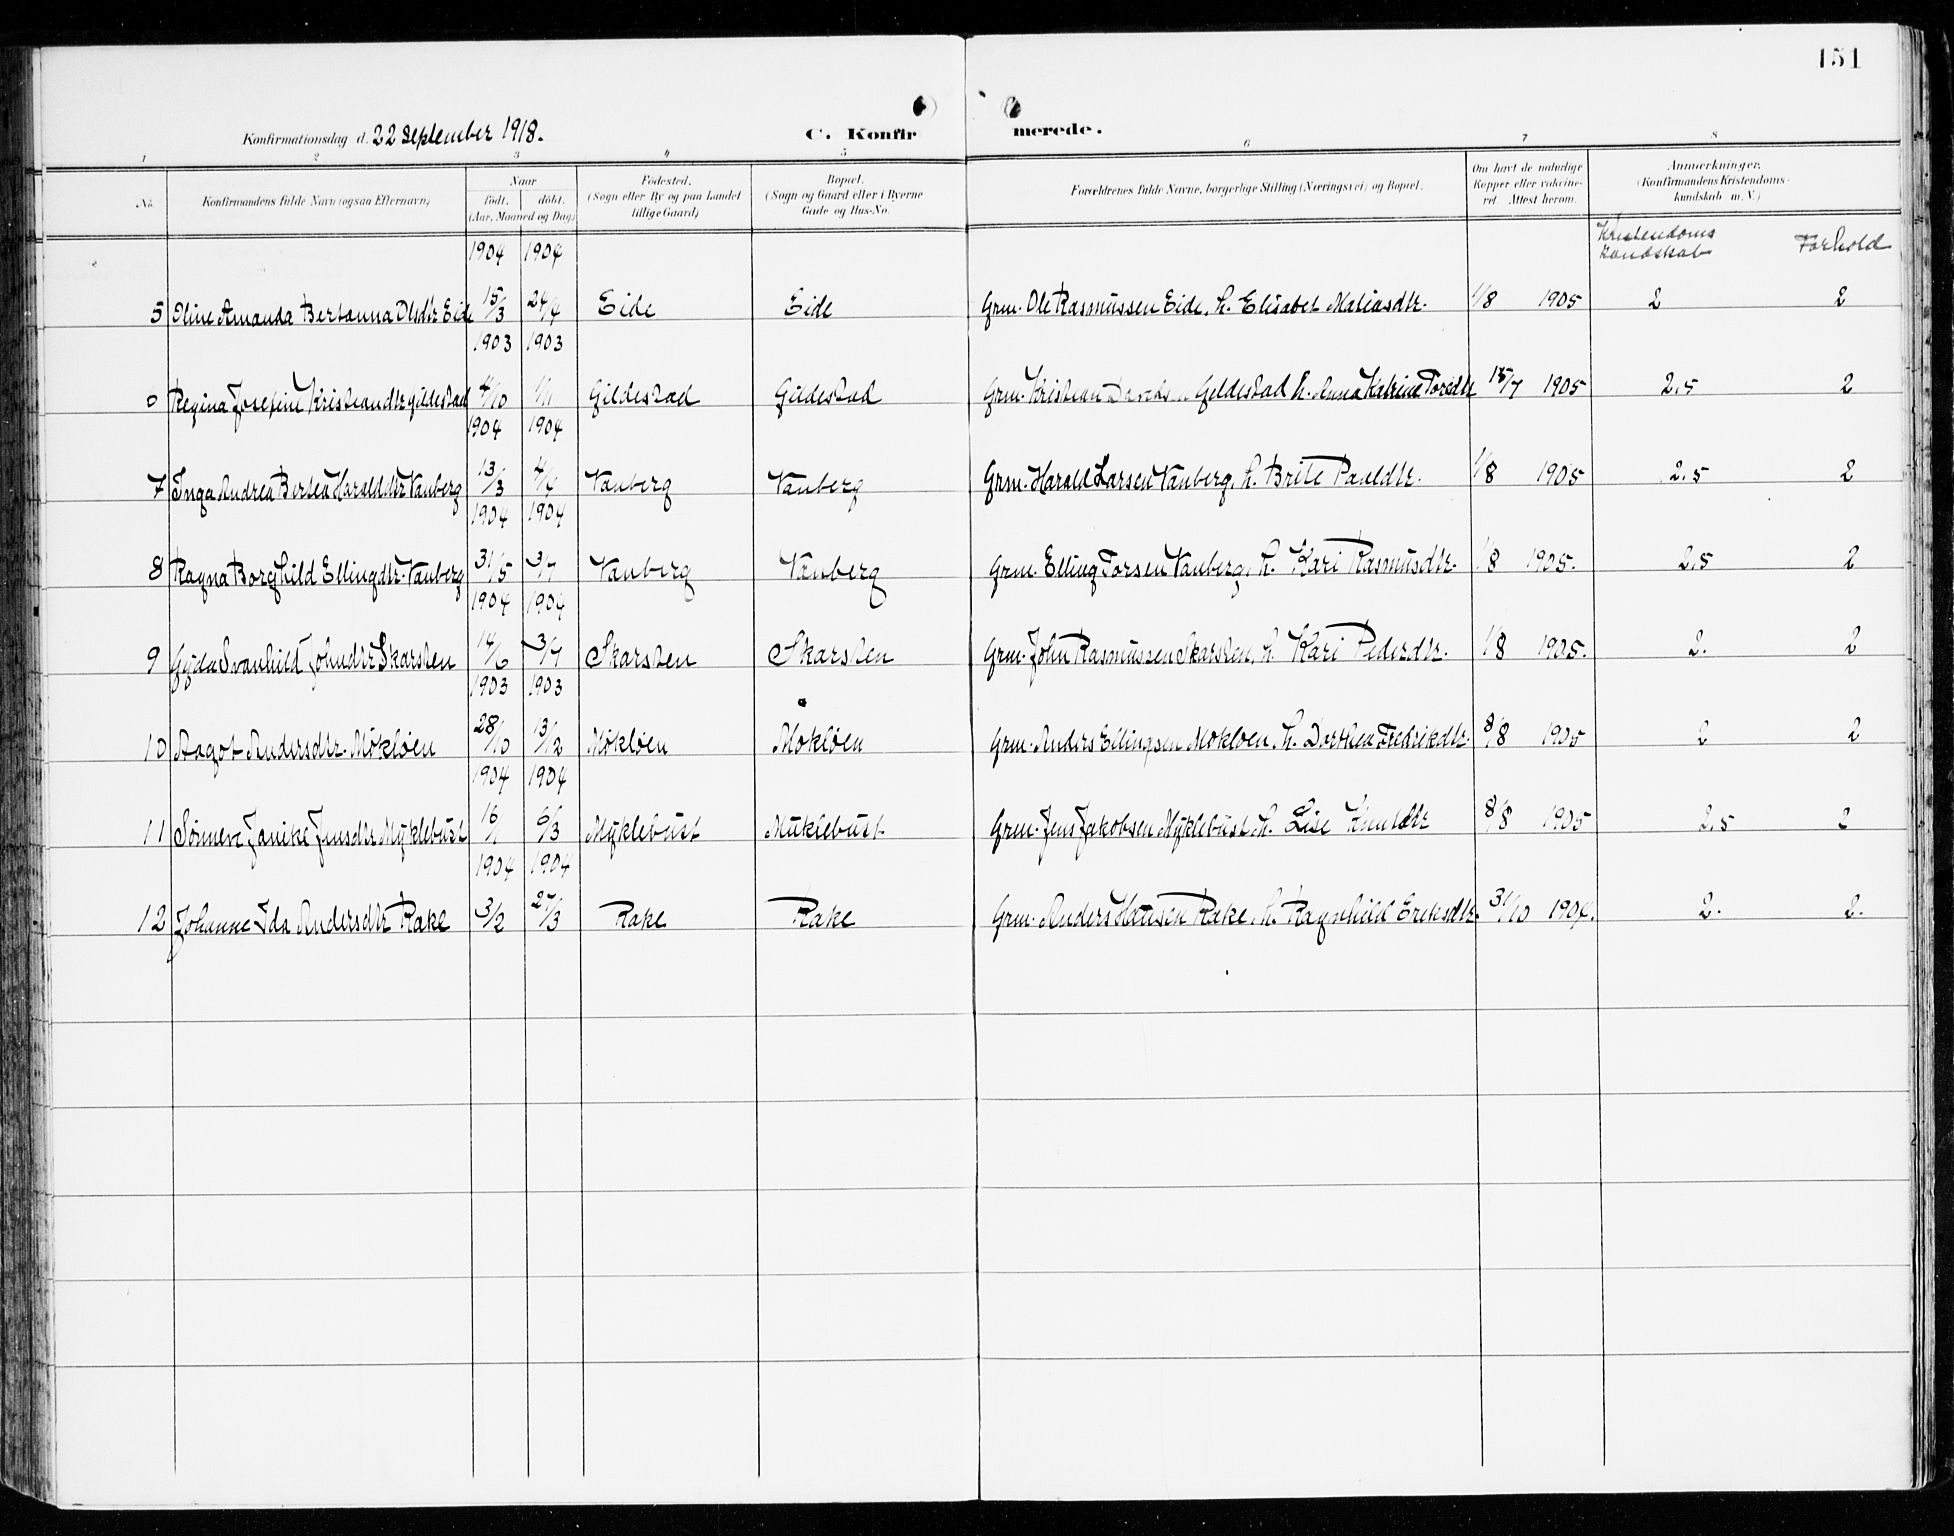 151
Konfirmationsdag d. 22 September 1918. C. Konfirmerede.
1 2 3 4 5 6 7 8
No. Konfirmandens fulde Navn (ogsaa Efternavn) Naar født. døbt. (Aar, Maaned og Dag) Fødested. (Sogn eller By og paa Landet tillige Gaard) Bopæl. (Sogn og Gaard eller i Byerne Gade og Hus-No. Forældrenes fulde Navne, borgerlige Stilling (Næringsvei) og Bopæl. Om havt de naturlige Kopper eller vakcineret. Attest herom. Anmærkninger. (Konfirmandens Kristendomskundskab m. V.)
1904 1904 Kristendoms kundskab Forhold
5 Oline Amanda Bertanna Olsdtr Eide 15/3 24/4 Eide Eide Grm. Ole Rasmussen Eide, h. Elisabet Matiasdtr. 1/8 1905 2 2
1903 1903
6 Regina Josefine Kristiandtr Gildestad 4/10 1/11 Gildestad Gildestad Grm. Kristian Gildestad h. Anna Katrine Toredtr 15/7 1905 2,5 2
1904 1904
7 Inga Andrea Bertea Haralddtr Vanberg 13/3 4/4 Vanberg Vanberg Grm. Harald Larsen Vanberg, h. Brite Pauldtr. 1/8 1905 2,5 2
1904 1904
8 Ragna Borghild Ellingdtr. Vanberg 31/5 3/7 Vanberg Vanberg Grm. Elling Torsen Vanberg, h. Kari Rasmusdtr. 1/8 1905. 2,5 2
1904 1904
9 Gyda Svanhild Johndtr Skarsten 14/6 3/7 Skarsten Skarsten Grm. John Rasmussen Skarsten, h. Kari Pederdtr. 1/8 1905. 2. 2
1903 1903
10 Aagot Andersdtr. Mökløen 28/10 13/12 Mökløen Mökløen Grm. Anders Ellingsen Mökløen, h. Dorthea Fredrikdtr. 8/8 1905 2 2
1904 1904
11 Sønneve Janike Jensdtr Myklebust 16/1 6/3 Myklebust Myklebust Grm. Jens Jakobsen Myklebust h. Lise Knutdtr 8/8 1905 2,5 2
1904 1904
12 Johanne Ida Andersdtr Rake 3/2 27/3 Rake Rake Grm. Anders Hansen Rake, h. Ragnhild Eriksdtr. 31/10 1904. 2. 2.